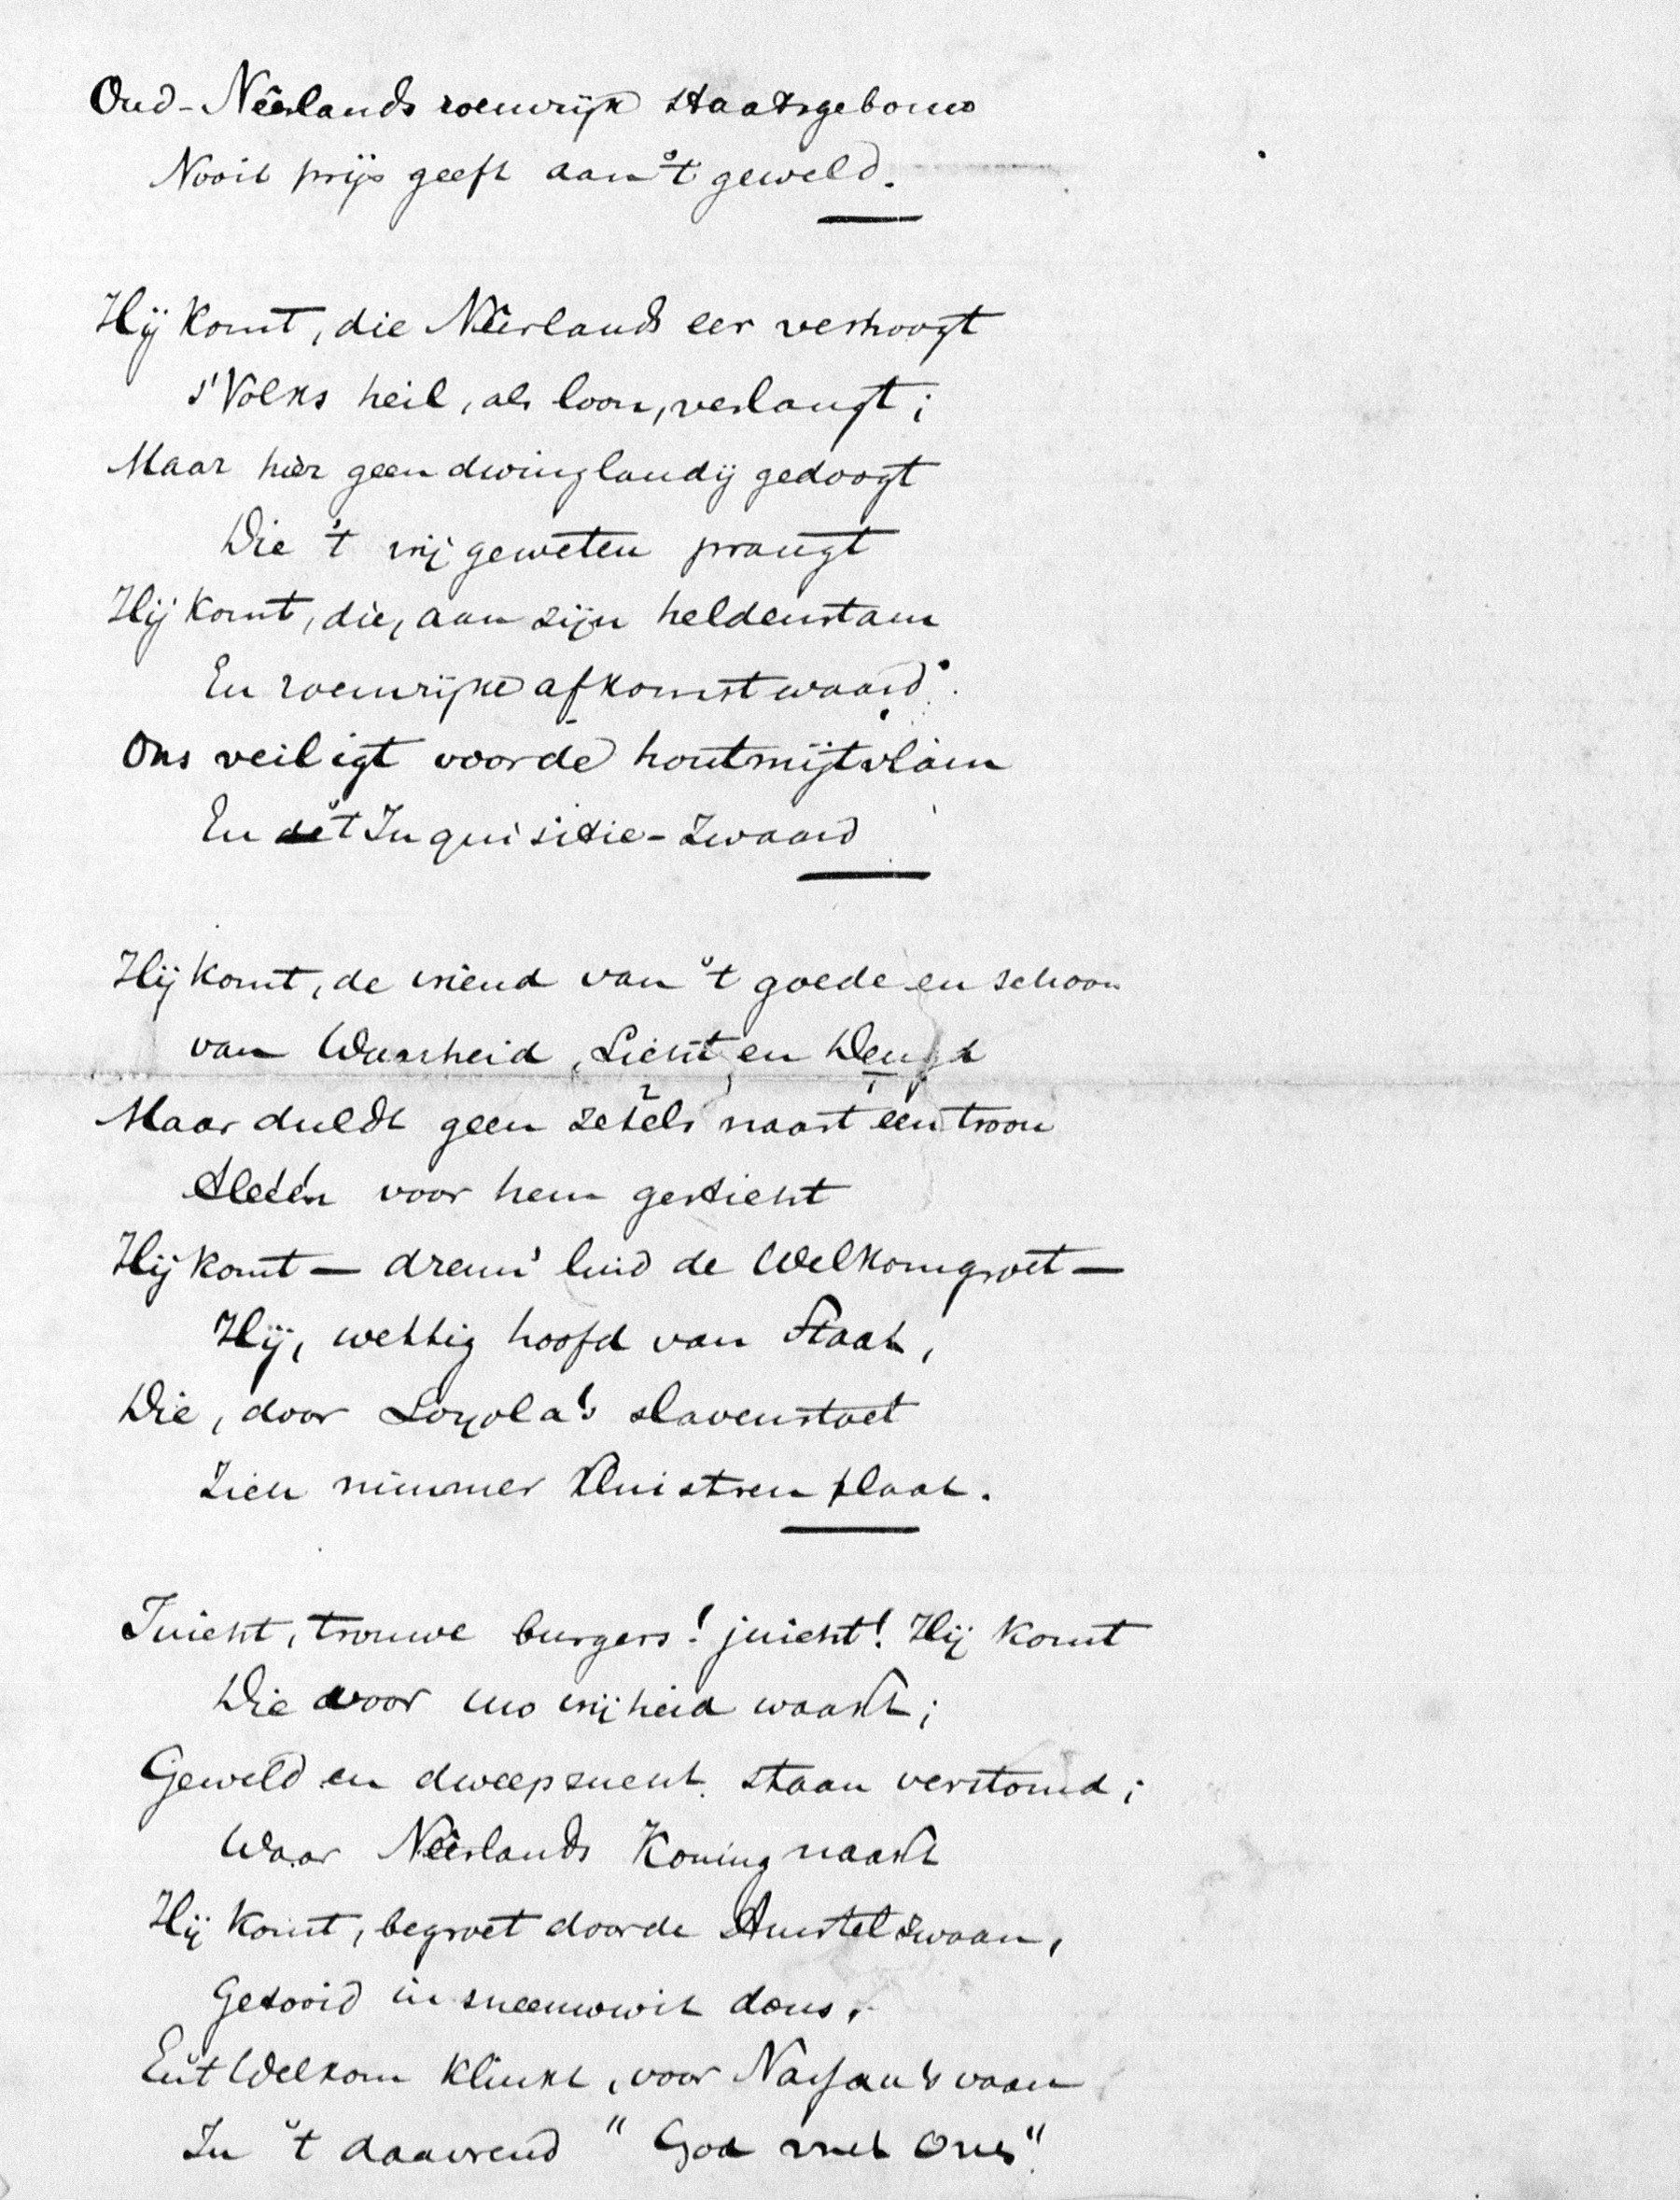 Oud-Neêrlands roemrijk staatsgebouw
Nooit prijs geeft aan 't geweld.
Hij komt, die Neêrlands eer verhoogt
s' Volks heil, als loon, verlangt;
Maar hier geen dwinglandij gedoogt
Die 't vrij geweten prangt
Hij komt, die, aan zijn heldenstam
En roemrijke afkomst waard.
Ons veiligt voor de houtmijtvlam
En 't Inquisitie-zwaard
Hij komt, de vriend van 't goede en schoon
van Waarheid, Licht en Deugd
Maar duldt geen zetels naast een troon
Aleén voor hem gesticht
Hij komt — dreun' luid de Welkomgroet —
Hij, wettig hoofd van Staat,
Die, door Loyola's slavenstoet
Zich nimmer kluistren laat.
Juicht, trouwe burgers! juicht! Hij komt
Die voor uw vrijheid waakt;
Geweld en dweepzucht staan verstomd;
Waar Neêrlands Koning naakt
Hij komt, begroet door de Amstelzwaan,
Getooid in sneeuwwit dons,
En 't Welkom klinkt, voor Nassau's vaan
In 't daavrend "God met Ons"